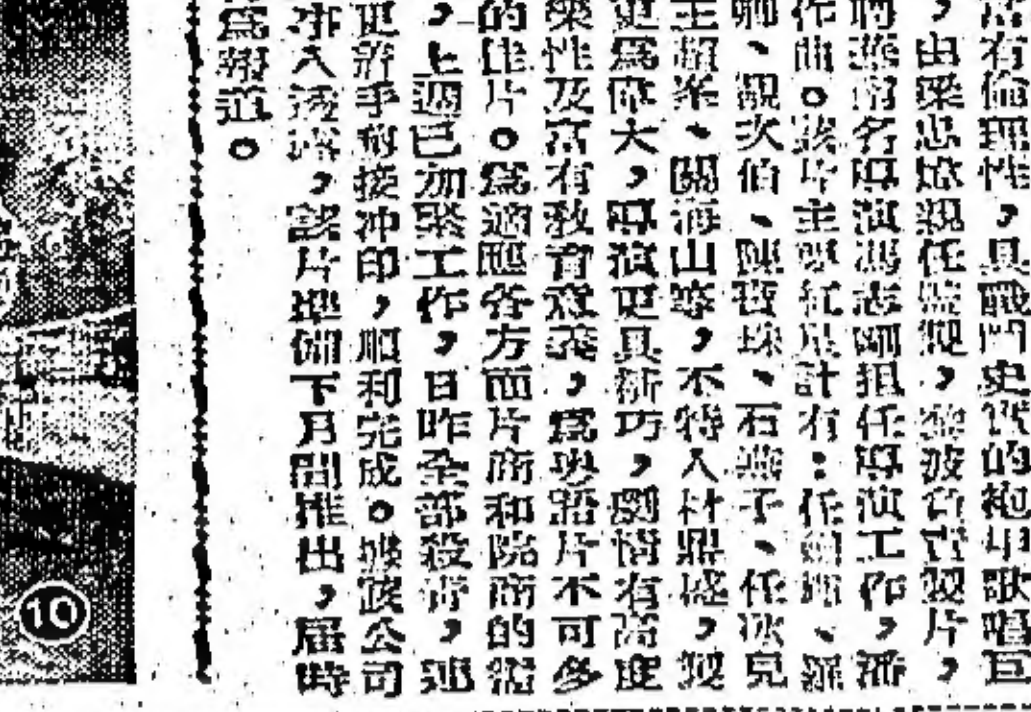 有倫理性，具戰鬥史詩的袍甲歌唱巨
，出梁忠炊親任監製，黎波倉責製片，
聘燕南名導演馮志剛担任導演工作，潘
作曲。該片主要紅星計有：任劍輝、羅
卿、靚次伯、陳寶珠、石燕子、任冰兒
主顏峯、關海山等，不特人材鼎盛，製
更爲龐大，導演更具新巧，劇情有高度
樂性及富有教育意義，爲粵語片不可多
的佳片。爲適應各方面片商和院商的需
，上週已加緊工作，日昨全部殺青，連
更辭手剪接冲印，順利完成。據該公司
人透露，該片準備下月間推出，屆時
爲報道。
10